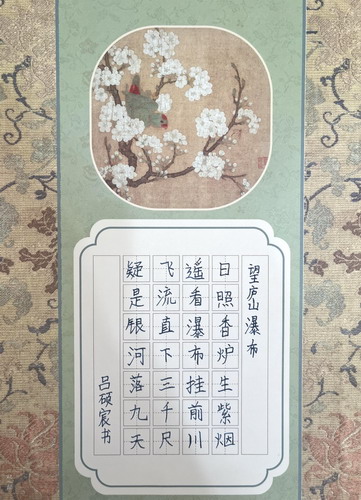 望庐山瀑布
日照香炉生紫烟
遥看瀑布挂前川
飞流直下三千尺
疑是银河落九天
吕硕宸书